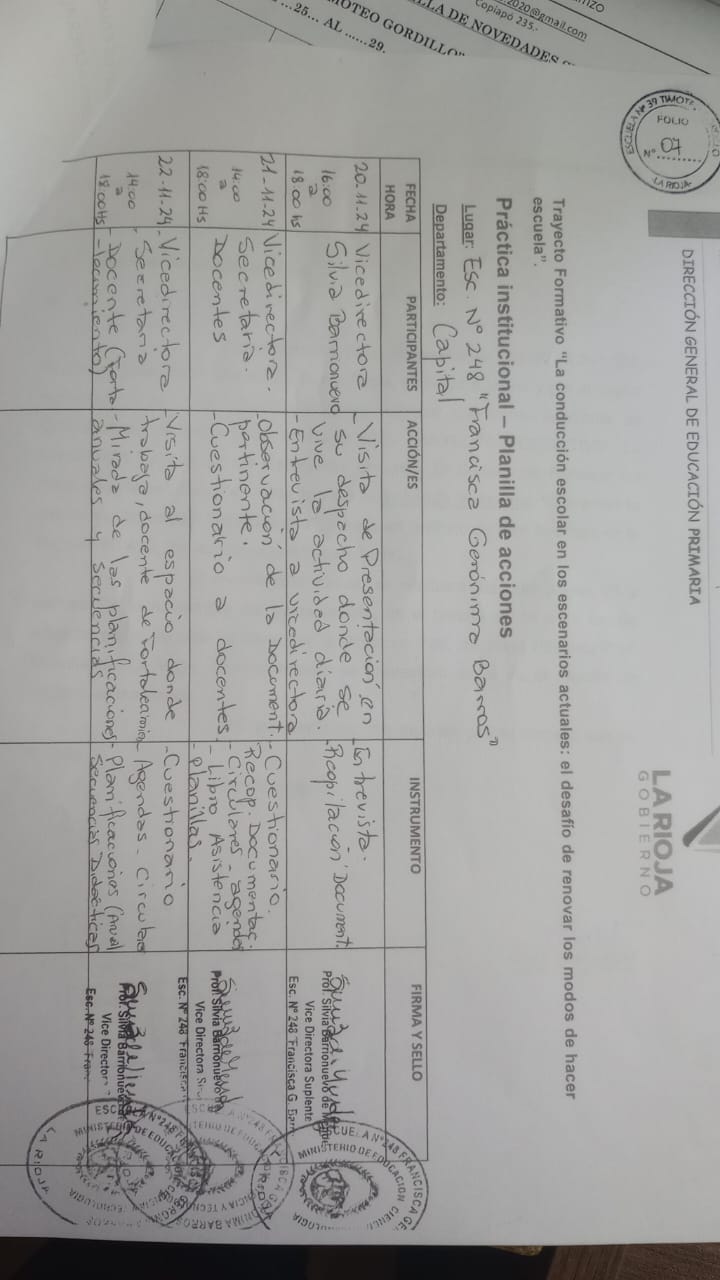 2020@gmail.com
Copiapó 235.-
LLA DE NOVEDADES
MOTEO GORDILLO"
...25... AL ......29.
ESCUELA Nº 39 TIMOTE
FOLIO
Nº 07
LA RIOJA
DIRECCIÓN GENERAL DE EDUCACIÓN PRIMARIA
LA RIOJA
GOBIERNO
Trayecto Formativo "La conducción escolar en los escenarios actuales: el desafío de renovar los modos de hacer
escuela".
Práctica institucional – Planilla de acciones
Lugar: Esc. Nº 248 "Francisca Gerónima Barros"
Departamento: Capital
FECHA HORA PARTICIPANTES ACCIÓN/ES INSTRUMENTO FIRMA Y SELLO
20.11.24 Vicedirectora - Visita de Presentación en - Entrevista.
16:00 Silvia Barrionuevo su despacho donde se - Recopilación Document.
a vive la actividad diaria.
18.00 hs - Entrevista a vicedirectora
Prof. Silvia Barrionuevo de
Vice Directora Suplente
Esc. Nº 248 "Francisca G. Barr
21-11-24 Vicedirectora. - Observación de la Document. - Cuestionario.
14:00 Secretaria. pertinente. Recop. Documentac.
a Docentes - Cuestionario a docentes - Circulares - agendas
18:00 Hs - Libro Asistencia
planillas.
Prof. Silvia Barrionuevo de
Vice Directora
Esc. Nº 248 "Francisca
22-11-24 - Vicedirectora - Visita al espacio donde - Cuestionario
14:00 - Secretaria trabaja, docente de Fortalecimien Agendas - Circulares
a - Docente (Forta - Mirada de las planificaciones - Planificaciones (Anual
18:00 Hs - lecimiento) anuales y secuencias Secuencias Didácticas
Prof. Silvia Barrionuevo
Vice Director
Esc. Nº 248 "Franc
ESCUELA Nº 248 FRANCISCA GE
MINISTERIO DE EDUCACION CIENCIA
LA RIOJA